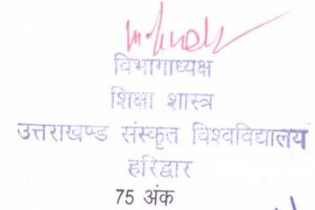 विभागाध्यक्ष
शिक्षा शास्त्र
उत्तराखण्ड संस्कृत विश्वविद्यालय
हरिद्वार
75 अंक